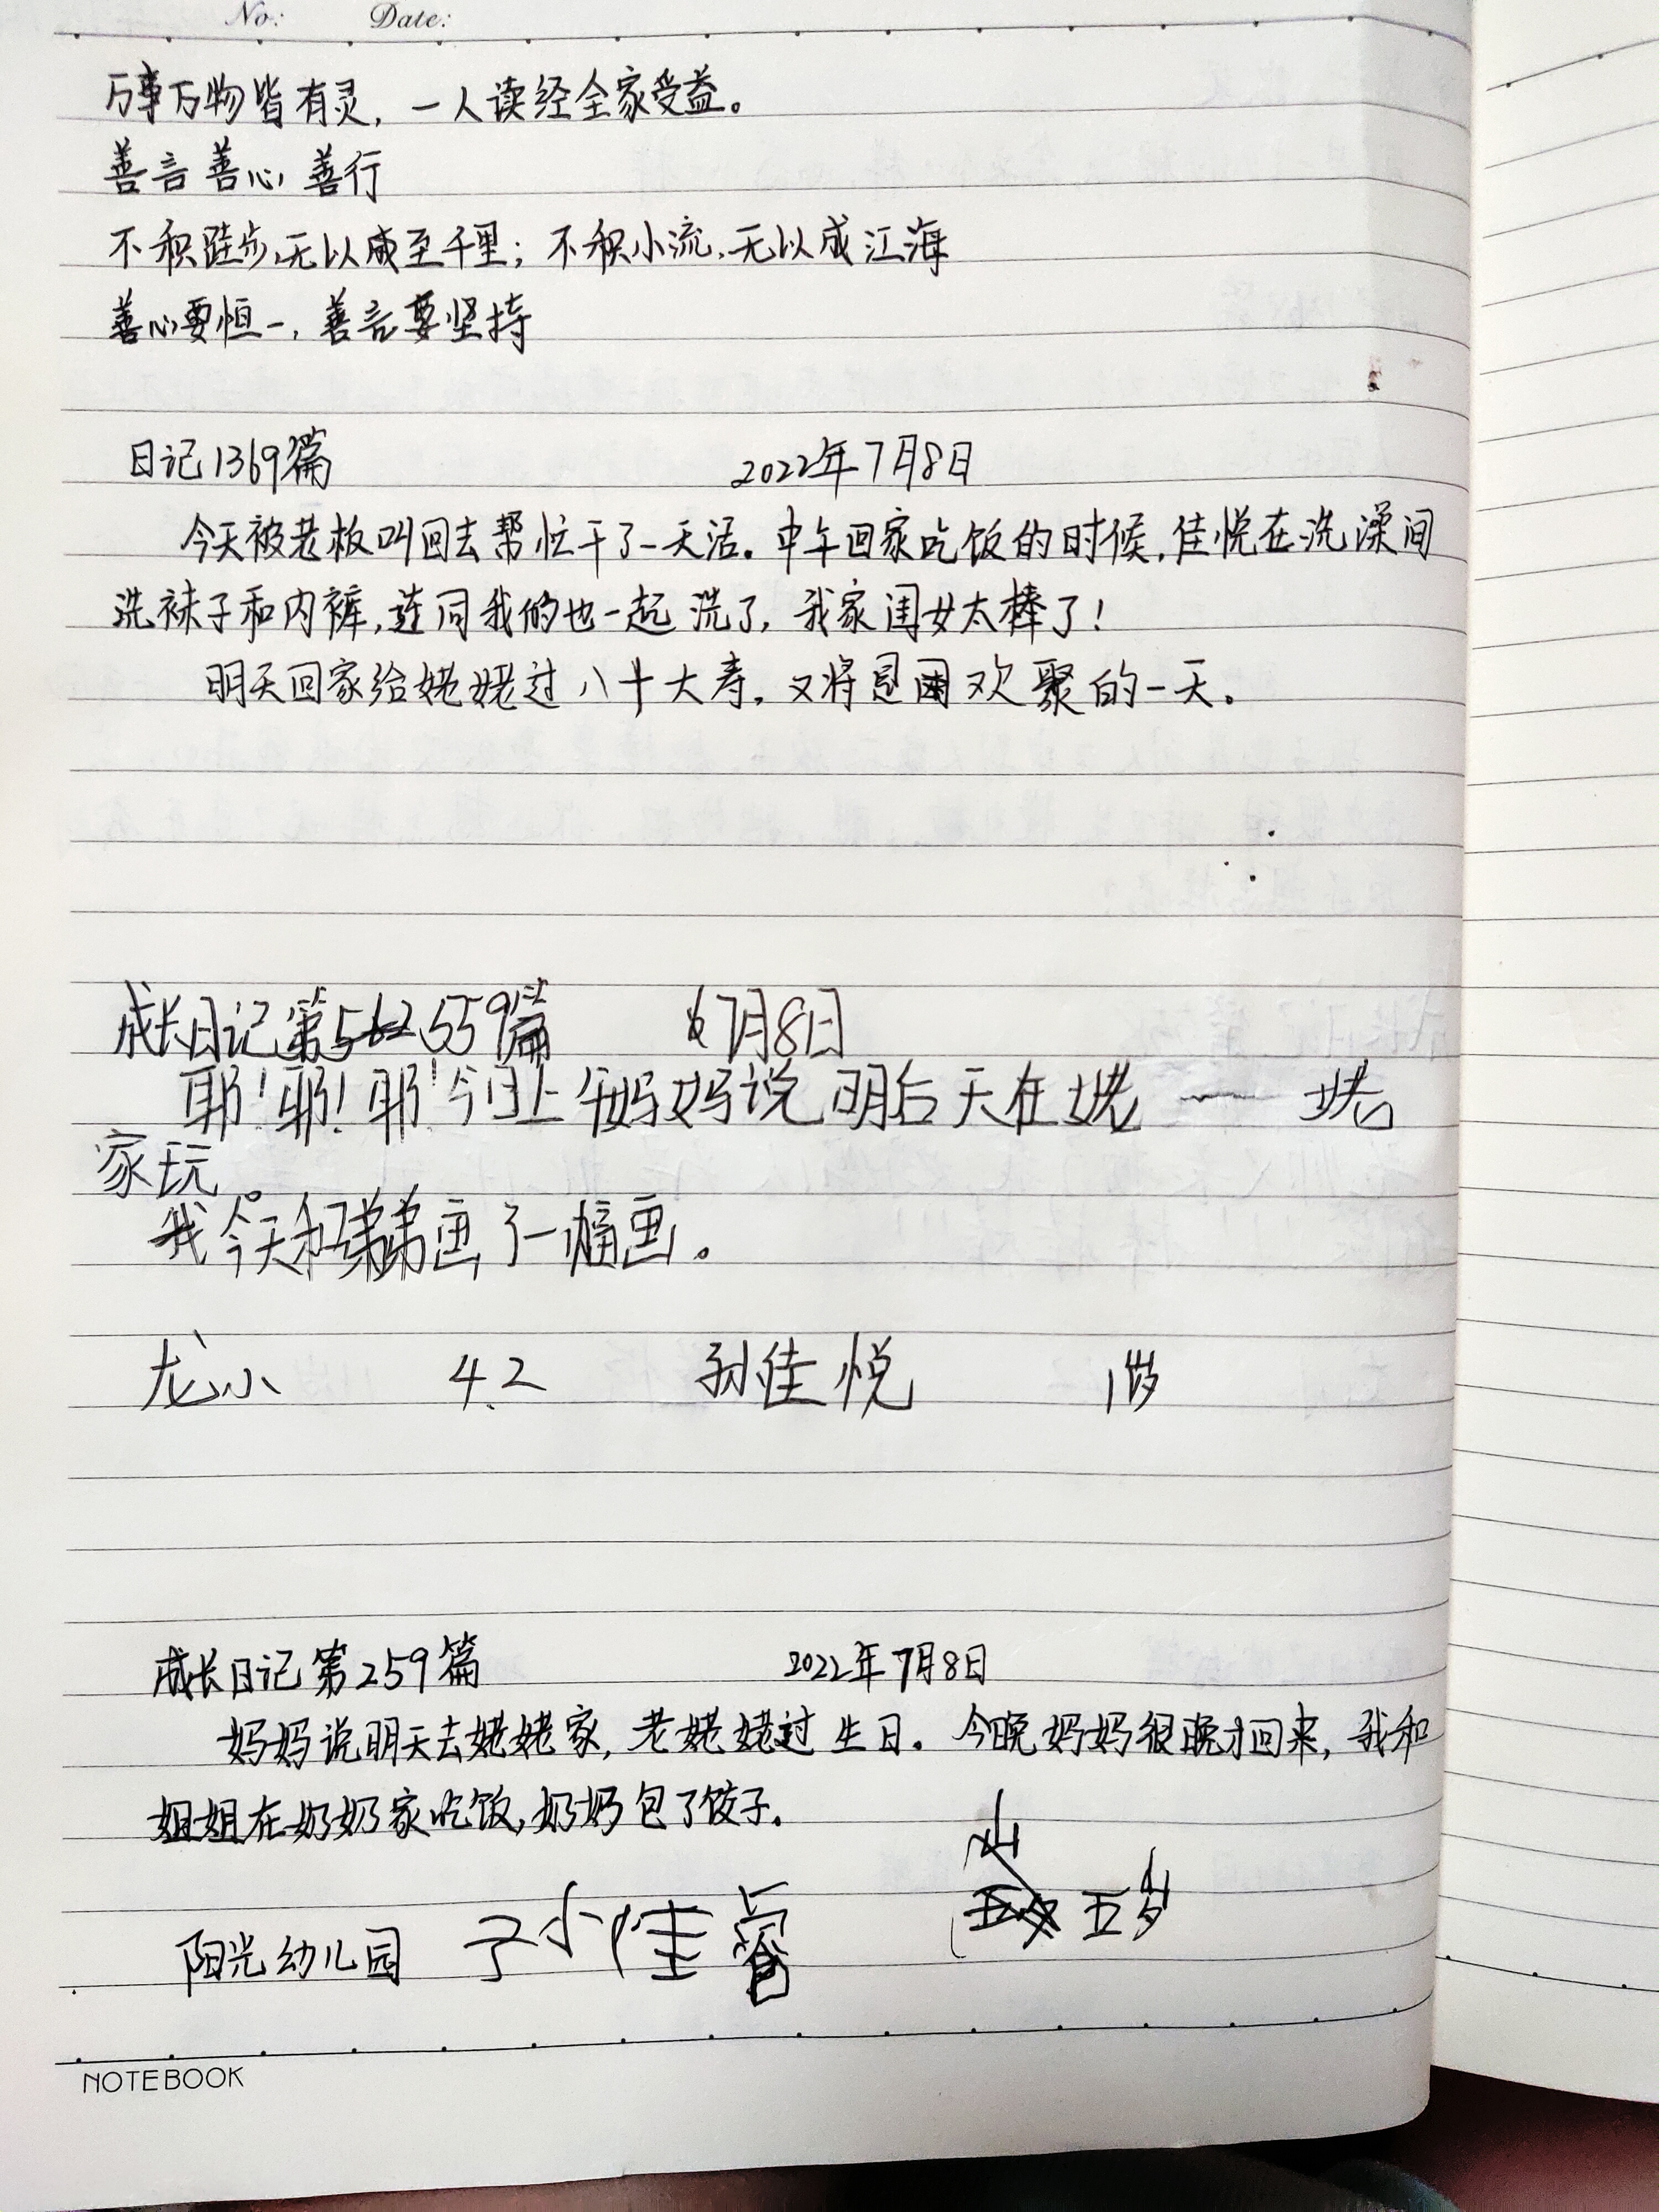 No: Date:
万事万物皆有灵，一人读经全家受益。
善言 善心 善行
不积跬步，无以成至千里；不积小流，无以成江海
善心要恒一，善言要坚持
日记1369篇 2022年7月8日
今天被老板叫回去帮忙干了一天活。中午回家吃饭的时候，佳悦在洗澡间
洗袜子和内裤，连同我的也一起洗了，我家闺女太棒了！
明天回家给姥姥过八十大寿，又将是团欢聚的一天。
成长日记第559篇 7月8日
耶！耶！耶！今日上午妈妈说明后天在姥一姥
家玩。
我今天和弟弟画了一幅画。
龙小 4.2 孙佳悦 11岁
成长日记第259篇 2022年7月8日
妈妈说明天去姥姥家，老姥姥过生日。今晚妈妈很晚才回来，我和
姐姐在奶奶家吃饭，奶奶包了饺子。
阳光幼儿园 孙佳睿 五岁
NOTEBOOK